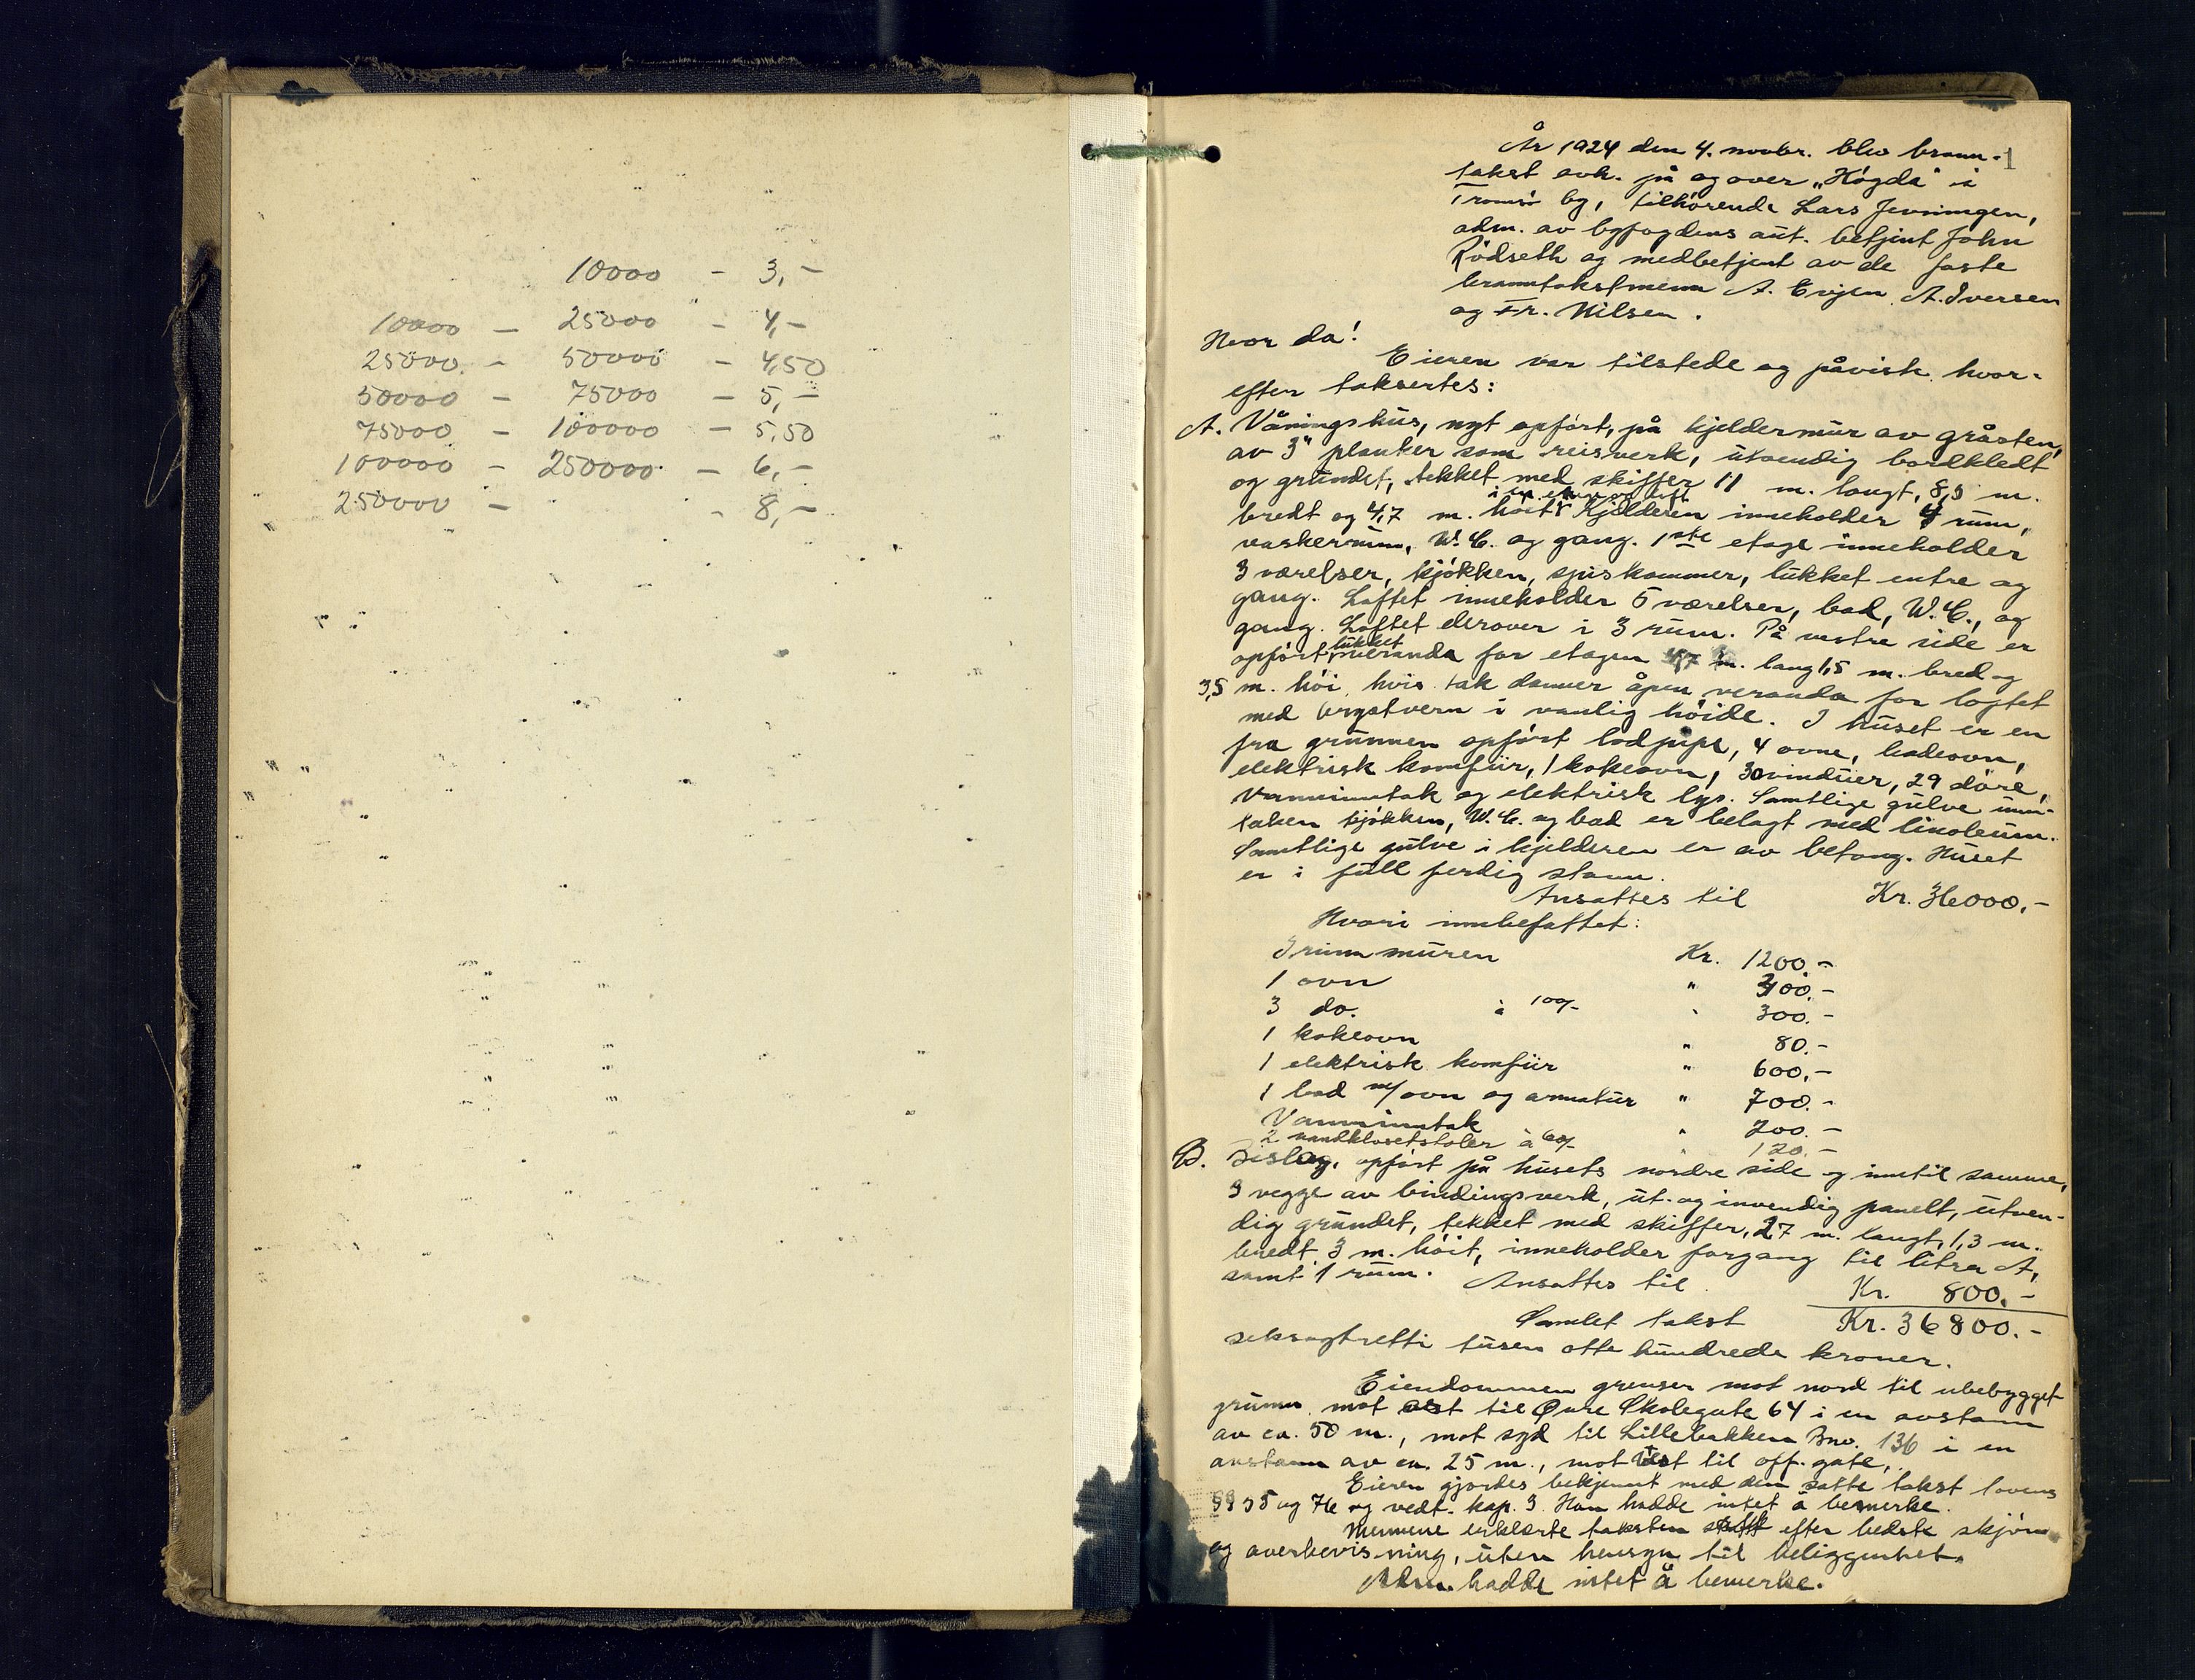 10000 - 3,-
10000 - 25000 - 4,-
25000 - 50000 - 4,50
50000 - 75000 - 5,-
75000 - 100000 - 5,50
100000 - 250000 - 6,-
250000 - - 8,-
1
År 1924 den 4. novbr. blev brann-
takst avh. på og over „Høgda" i
Tromsø by, tilhørende Lars Jenningen,
adm. av byfogdens aut. betjent John
Rödseth og medbetjent av de faste
branntakstmenn A. Evjen A. Iversen
og Fr. Nilsen.
Hvor da!
Eieren var tilstede og påviste hvor-
efter taksertes:
A. Våningshus, nyt opført, på kjeldermur av gråsten,
av 3" planker som reisverk, utvendig bordkledt
og grundet, tekket med skiffer 11 m. langt, 8,5 m.
i en etage og loft
bredt og 4,7 m. høit. Kjelderen inneholder 4 rum,
vaskerum, W.C. og gang. 1ste etage inneholder
3 værelser, kjøkken, spiskammer, lukket entre og
gang. Loftet inneholder 5 værelser, bad, W.C., og
gang. Loftet derover i 3 rum. På vestre side er
lukket
opført veranda for etagen 4,7 m. lang 1,5 m. bred og
3,5 m. høi, hvis tak danner åpen veranda for loftet
med brystvern i vanlig høide. I huset er en
fra grunnen opført lodpipe, 4 ovne, badeovn,
elektrisk komfur, 1 kokeovn, 30 vinduer, 29 døre,
Vanninntak og elektrisk lys. Samtlige gulve unn-
taken kjøkken, W.C. og bad er belagt med linoleum.
Samtlige gulve i kjelderen er av betong. Huset
er i full ferdig stann.
Ansattes til Kr. 36000,-
Hvori innbefattet:
Grunnmuren Kr. 1200.-
1 ovn " 300.-
3 do. à 100/- " 300.-
1 kokeovn " 80.-
1 elektrisk komfur " 600,-
1 bad m/ovn og armatur " 700.-
Vanninntak " 200.-
2 vandklosetstoler à 60/- " 120.-
B. Bislag, opført på husets nordre side og inntil samme,
3 vegge av bindingsverk, ut- og invendig panelt, utven-
dig grundet, tekket med skiffer, 2,7 m. langt, 1,3 m.
bredt 3 m. høit, inneholder forgang til litra A,
samt 1 rum. Ansattes til Kr. 800.-
Samlet takst Kr. 36800.-
seksogtretti tusen otte hundrede kroner.
Eiendommen grenser mot nord til ubebygget
grunn mot øst til Øvre Skolegate 64 i en avstann
av ca. 50 m., mot syd til Lillebakken Bno. 136 i en
avstann av ca. 25 m., mot vest til off. gate,
Eieren gjordes bekjennt med den satte takst lovens
§§ 35 og 76 og vedt. kap. 3. Han hadde intet å bemerke.
Mennene erklærte taksten satt efter bedste skjønn
og overbevisning, uten hensyn til beliggenhet.
Adm. hadde intet å bemerke.